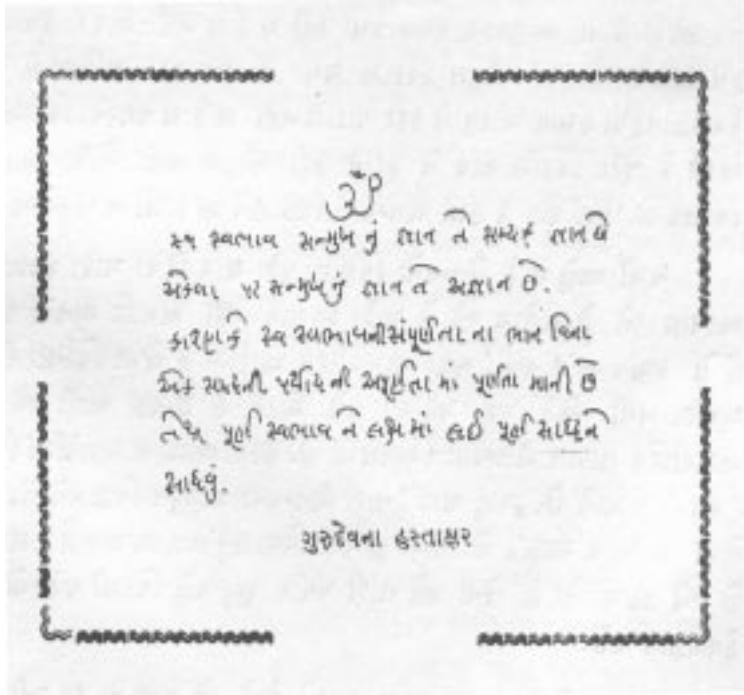 ૐ
સ્વ સ્વભાવ સન્મુખ નું જ્ઞાન તે સમ્યક્ જ્ઞાન છે
એકલા પર સન્મુખનું જ્ઞાન તે અજ્ઞાન છે.
કારણકે સ્વ સ્વભાવની સંપૂર્ણતા ના ભાન વિના
એક સમયની પર્યાય ની અપૂર્ણતા માં પૂર્ણતા માની છે
તેથી પૂર્ણ સ્વભાવ ને લક્ષમાં લઈ પૂર્ણ સાધ્યને
સાધવું.
ગુરુદેવના હસ્તાક્ષર